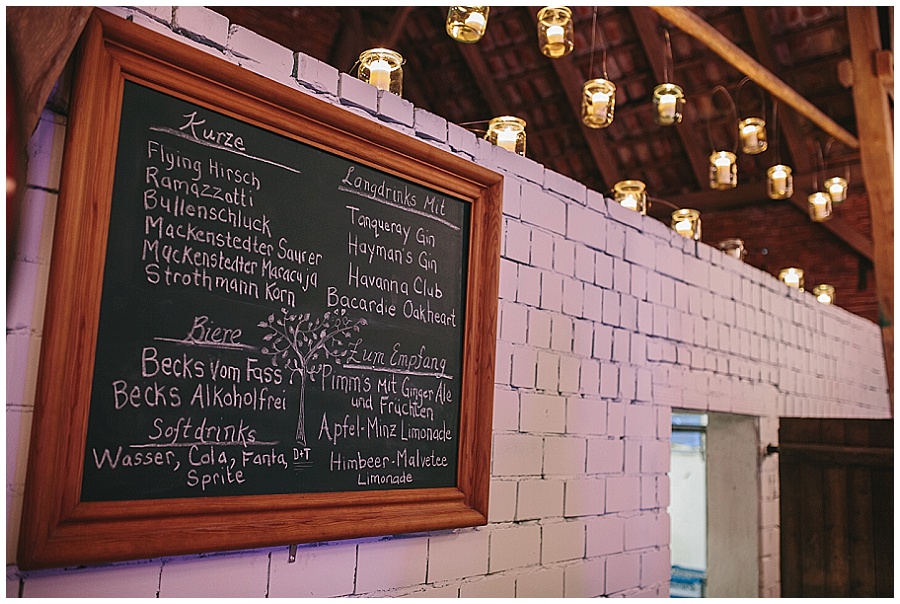 Kurze
Flying Hirsch
Ramazzotti
Bullenschluck
Mackenstedter Saurer
Mackenstedter Maracuja
Strothmann Korn
Biere
Becks vom Fass
Becks Alkoholfrei
Softdrinks
Wasser, Cola, Fanta,
Sprite
D+T
Langdrinks Mit
Tanqueray Gin
Hayman's Gin
Havanna Club
Bacardie Oakheart
Zum Empfang
Pimm's mit Ginger Ale
und Früchten
Apfel-Minz Limonade
Himbeer-Malvetee
Limonade